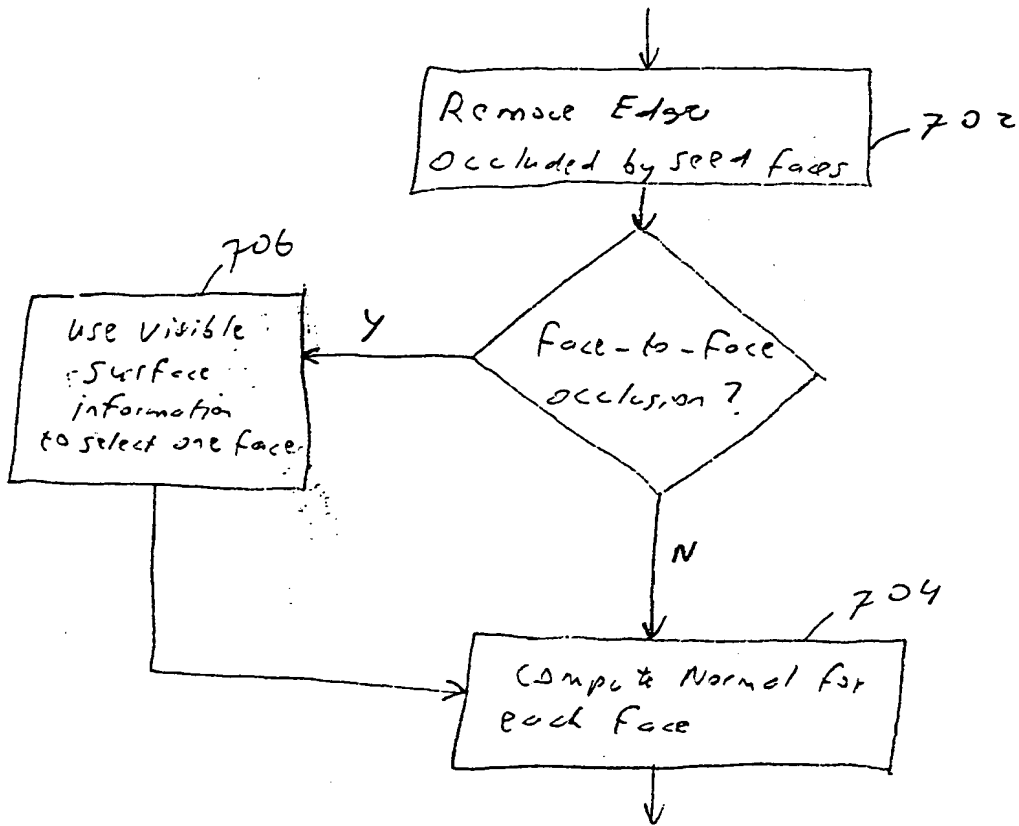 Remove Edge
occluded by seed faces
702
706
use visible
surface
information
to select one face
Y
face-to-face
occlusion?
N
704
Compute Normal for
each face